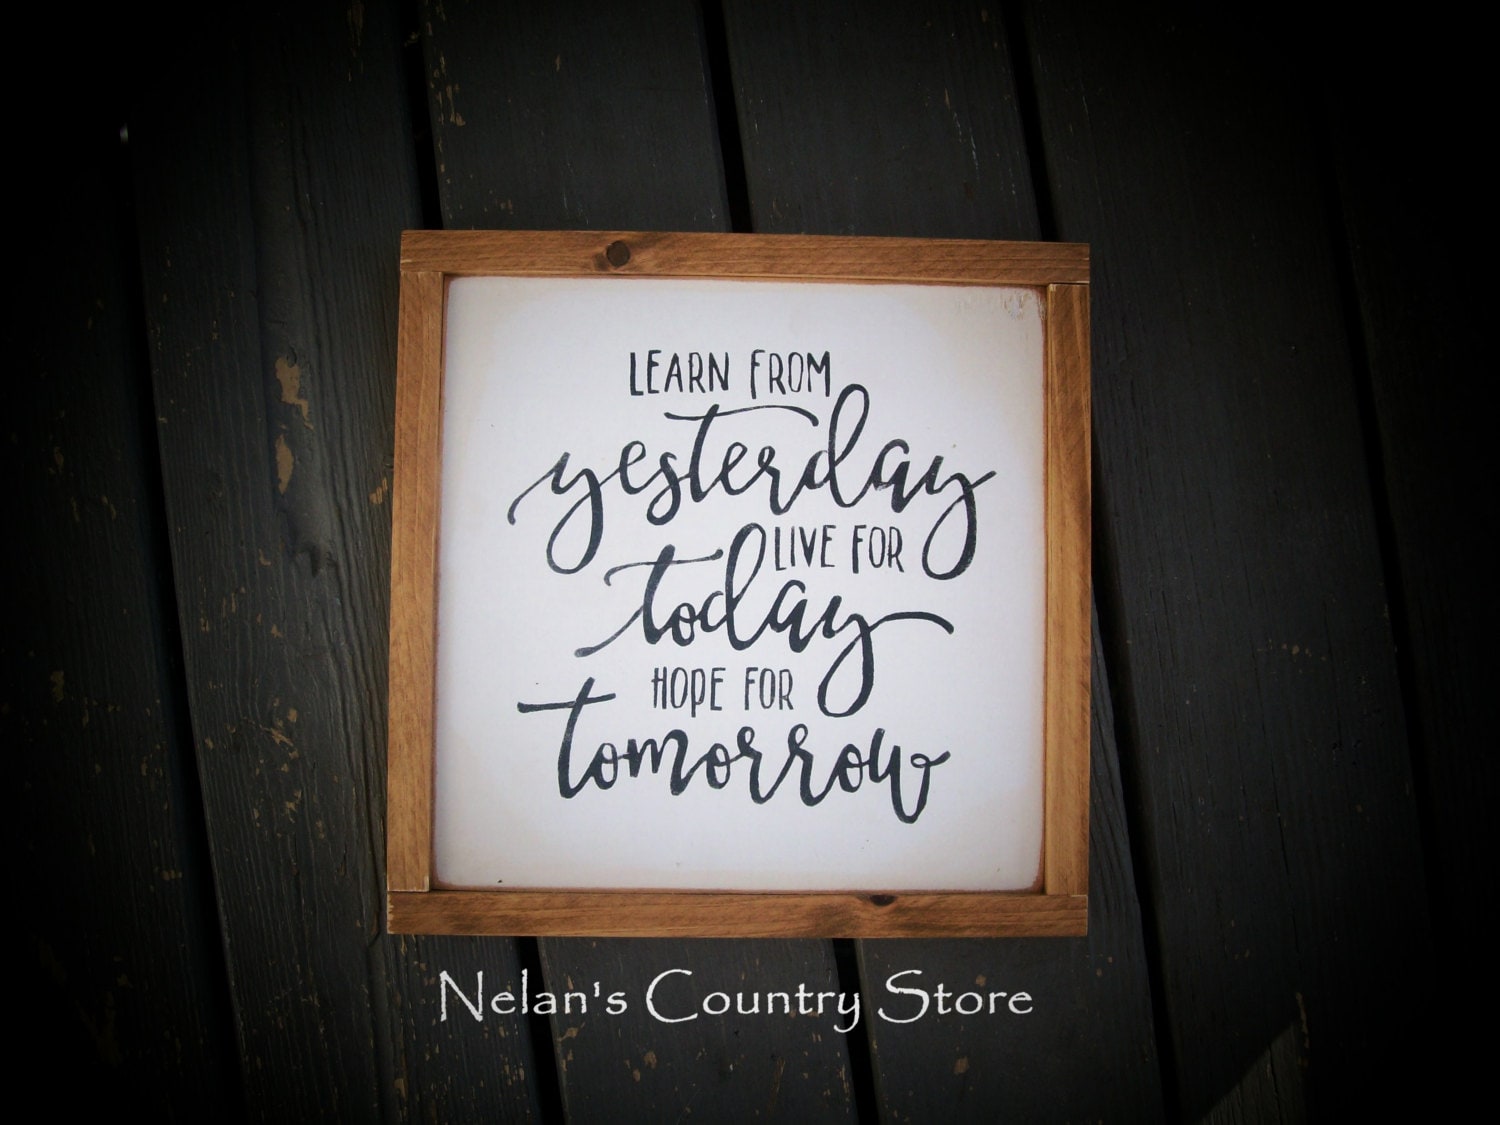 LEARN FROM
yesterday
LIVE FOR
today
HOPE FOR
tomorrow
Nelan's Country Store